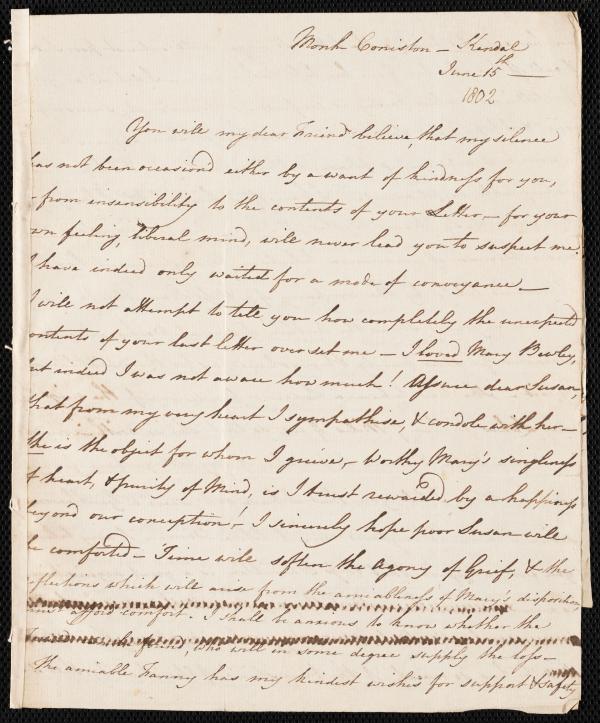 Monk Coniston – Kendal
June 15th —
1802
You will my dear Friend believe, that my silence
has not been occasion'd either by a want of kindness for you,
– from insensibility to the contents of your Letter – for your
own feeling, liberal mind, will never lead you to suspect me.
I have indeed only waited for a mode of conveyance. –
I will not attempt to tell you how completely the unexpected
contents of your last letter overset me – I loved Mary Bewley,
but indeed I was not aware how much! Assure dear Susan,
that from my very heart I sympathise, & condole with her –
she is the object for whom I grieve, – Worthy Mary's singleness
of heart, & purity of Mind, is I trust rewarded by a happiness
beyond our conception! – I sincerely hope poor Susan will
be comforted – Time will soften the Agony of Grief, & the
reflections which will arise from the amiableness of Mary's disposition
afford comfort. I shall be anxious to know whether the
friend, who will in some degree supply the loss –
The amiable Fanny has my kindest wishes for support & safety